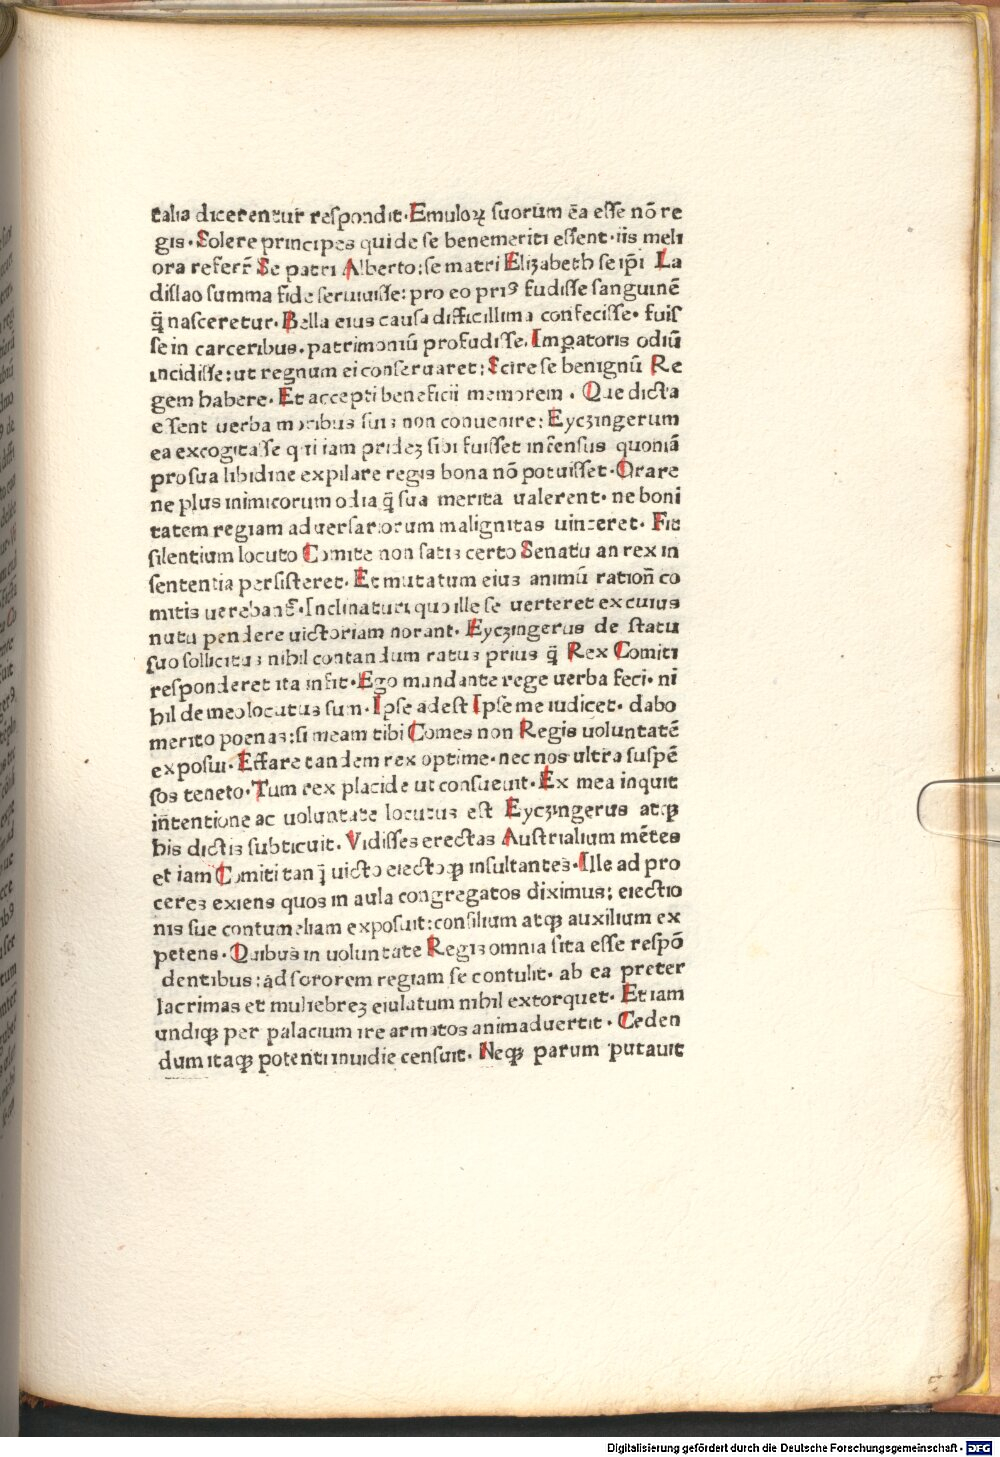 talia dicerentur respondit·Emuloꝝ suorum ēa esse nō re
gis·Solere principes qui de se benemeriti essent·iis meli
ora referr̄ Se patri Alberto:se matri Elizabeth se ip̄i La
dislao summa fide seruiuisse:pro eo priꝰ fudisse sanguinē
q̄ nasceretur·Bella eius causa difficillima confecisse·fuis
se in carceribus.patrimoniū profudisse.Imꝑatoris odiū
incidisse:ut regnum ei conseruaret:Scire se benignū Re
gem habere·Et accepti beneficii memorem.Que dicta
essent uerba moribus suis non conuenire:Eyczingerum
ea excogitasse qui iam pridez sibi fuisset infensus quoniā
pro sua libidine expilare regis bona nō potuisset·Orare
ne plus inimicorum odia q̄ sua merita ualerent·ne boni
tatem regiam aduersariorum malignitas uinceret·Fit
silentium locuto Comite non satis certo Senatu an rex in
sententia persisteret·Et mutatum eius animū ration̄ co
mitis uereban̄t·Inclinaturi quo ille se uerteret ex cuius
nutu pendere uictoriam norant·Eyczingerus de statu
suo sollicitus nihil contandum ratus prius q̄ Rex Comiti
responderet ita infit·Ego mandante rege uerba feci·ni
hil de meo locutus sum·Ipse adest Ipse me iudicet·dabo
merito poenas:si meam tibi Comes non Regis uoluntatē
exposui·Effare tandem rex optime·nec nos ultra suspē
sos teneto·Tum rex placide ut consueuit·Ex mea inquit
in̄tentione ac uoluntate locutus est Eyczingerus atqꝫ
his dictis subticuit.Vidisses erectas Australium mētes
et iam Comiti tanq̄ uicto eiectoqꝫ insultantes·Ille ad pro
ceres exiens quos in aula congregatos diximus;eiectio
nis sue contumeliam exposuit:consilium atqꝫ auxilium ex
petens·Quibus in uoluntate Regis omnia sita esse respō
dentibus:ad sororem regiam se contulit·ab ea preter
lacrimas et muliebrez eiulatum nihil extorquet·Et iam
undiqꝫ per palacium ire armatos animaduertit·Ceden
dum itaqꝫ potenti inuidie censuit·Neqꝫ parum putauit
Digitalisierung gefördert durch die Deutsche Forschungsgemeinschaft - DFG